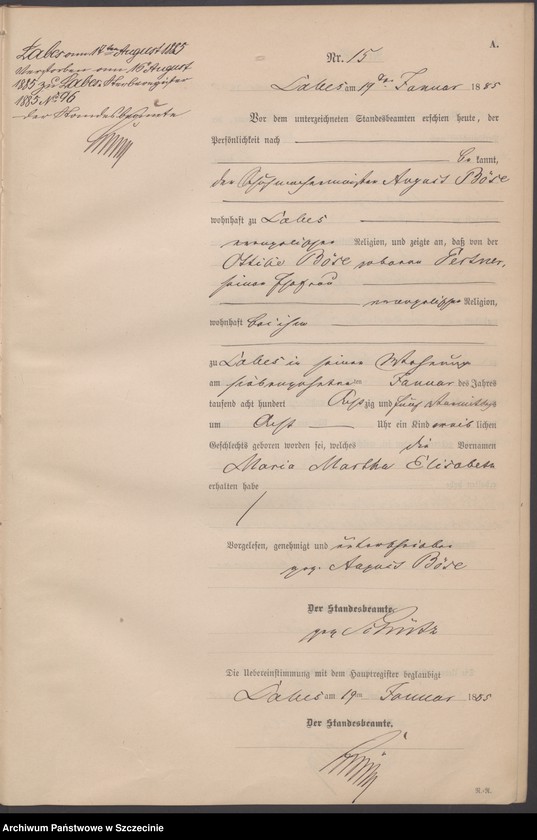 Labes am 17ten August 1885
Verstorben am 16 August
1885 zu Labes. Sterberegister
1885 Nr 96
der Standesbeamte
A.
Nr. 15
Labes am 19ten Januar 1885
Vor dem unterzeichneten Standesbeamten erschien heute, der
Persönlichkeit nach
be kannt,
der Schuhmachermeister August Böse
wohnhaft zu Labes
evangelischer Religion, und zeigte an, daß von der
Ottilie Böse geborene Festner,
seiner Ehefrau
evangelischer Religion,
wohnhaft bei ihm
zu Labes in seiner Wohnung
am siebenzehnten Januar des Jahres
tausend acht hundert Achtzig und fünf Vormittags
um Acht Uhr ein Kind weiblichen
Geschlechts geboren worden sei, welches die Vornamen
Maria Martha Elisabeth
erhalten habe
Vorgelesen, genehmigt und unterschrieben
gez. August Böse
Der Standesbeamte.
gez Schütz
Die Uebereinstimmung mit dem Hauptregister beglaubigt
Labes am 19ten Januar 1885
Der Standesbeamte.
R.-R.
Archiwum Państwowe w Szczecinie